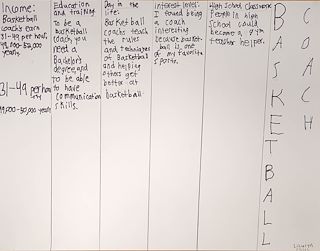 Income:
Basketball
coachs earn
31-49 per hour,
49,000-50,000
yearly.
31-49 per hour
49,000-50,000 yearly
Education
and training:
To be a
basketball
coach you
need a
Bachelors
degree and
to be able
to have
communication
skills.
Day in the
life:
Basketball
coachs teach
the rules
and techniques
of Basketball
and helping
others get
better at
basketball.
Interest level:
I found being
a coach
interesting
because basket-
ball is one of
my favorite
sports.
High School Classes:
Health in high
school could
become a gym
teacher helper.
BASKETBALL
COACH